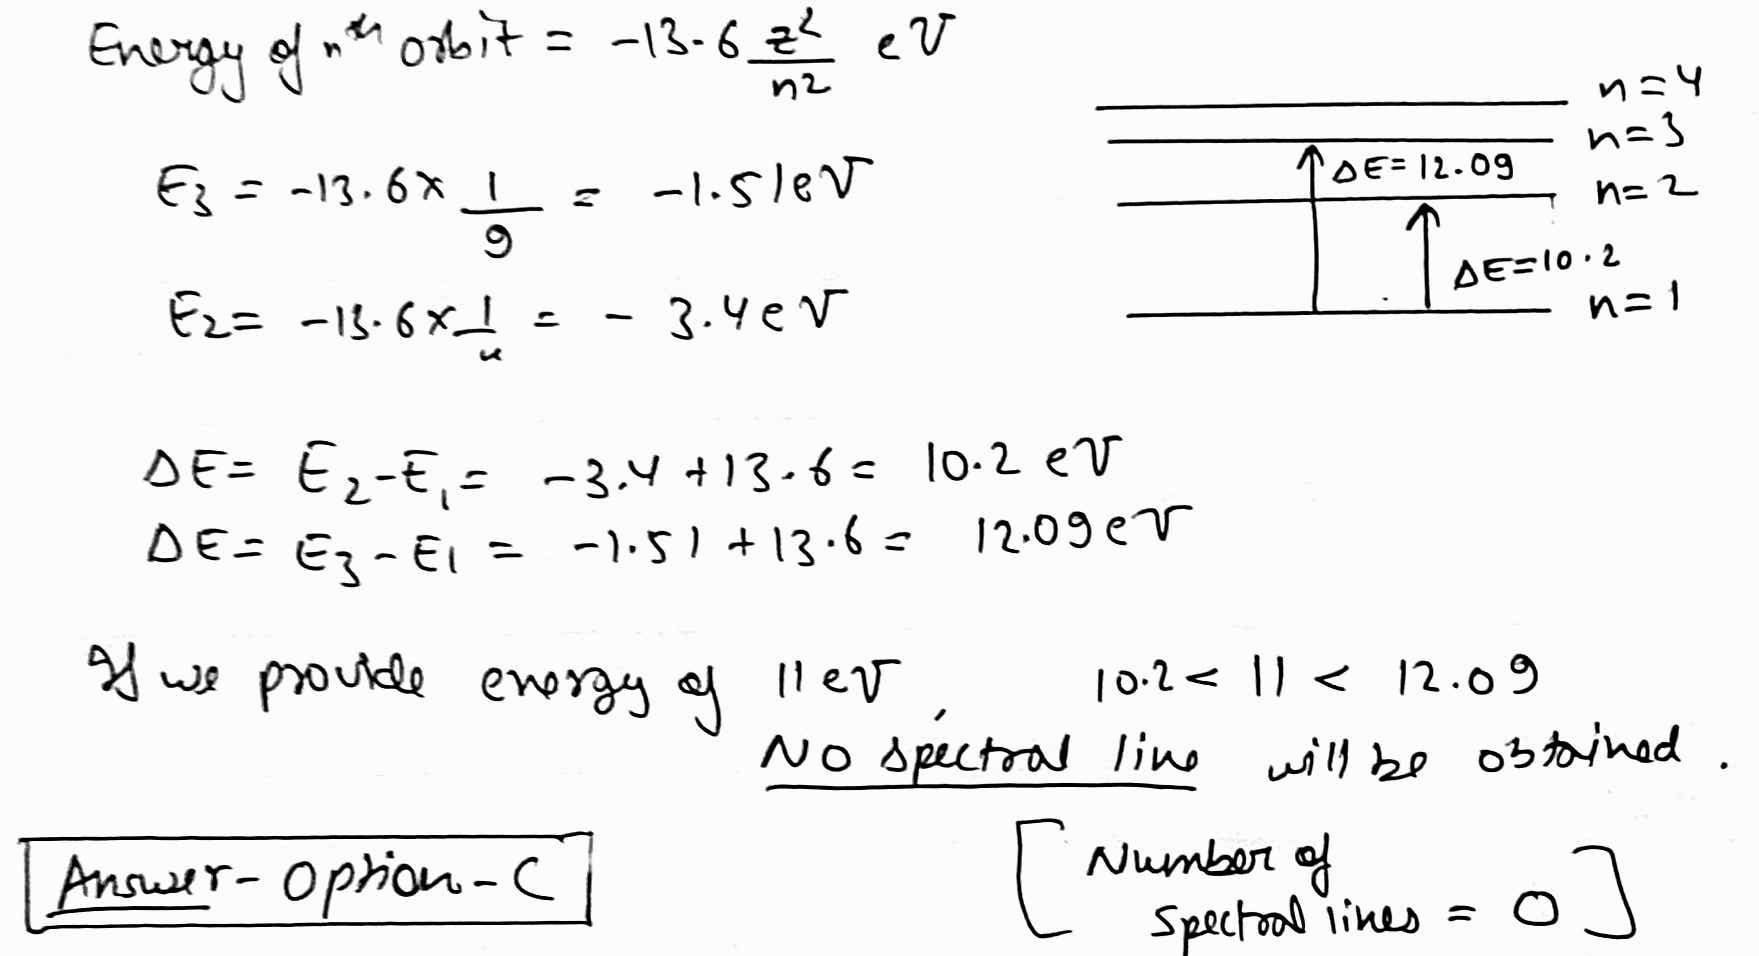 Energy of nth orbit = -13.6 z²/n² eV
n=4
n=3
E3 = -13.6 x 1/9 = -1.51eV
ΔE=12.09
n=2
E2= -13.6 x 1/4 = - 3.4eV
ΔE=10.2
n=1
ΔE= E2-E1= -3.4 +13.6= 10.2 eV
ΔE= E3-E1 = -1.51 +13.6= 12.09eV
If we provide energy of 11eV, 10.2< 11 < 12.09
NO spectral line will be obtained.
Answer- Option-C
[Number of
spectral lines = 0]